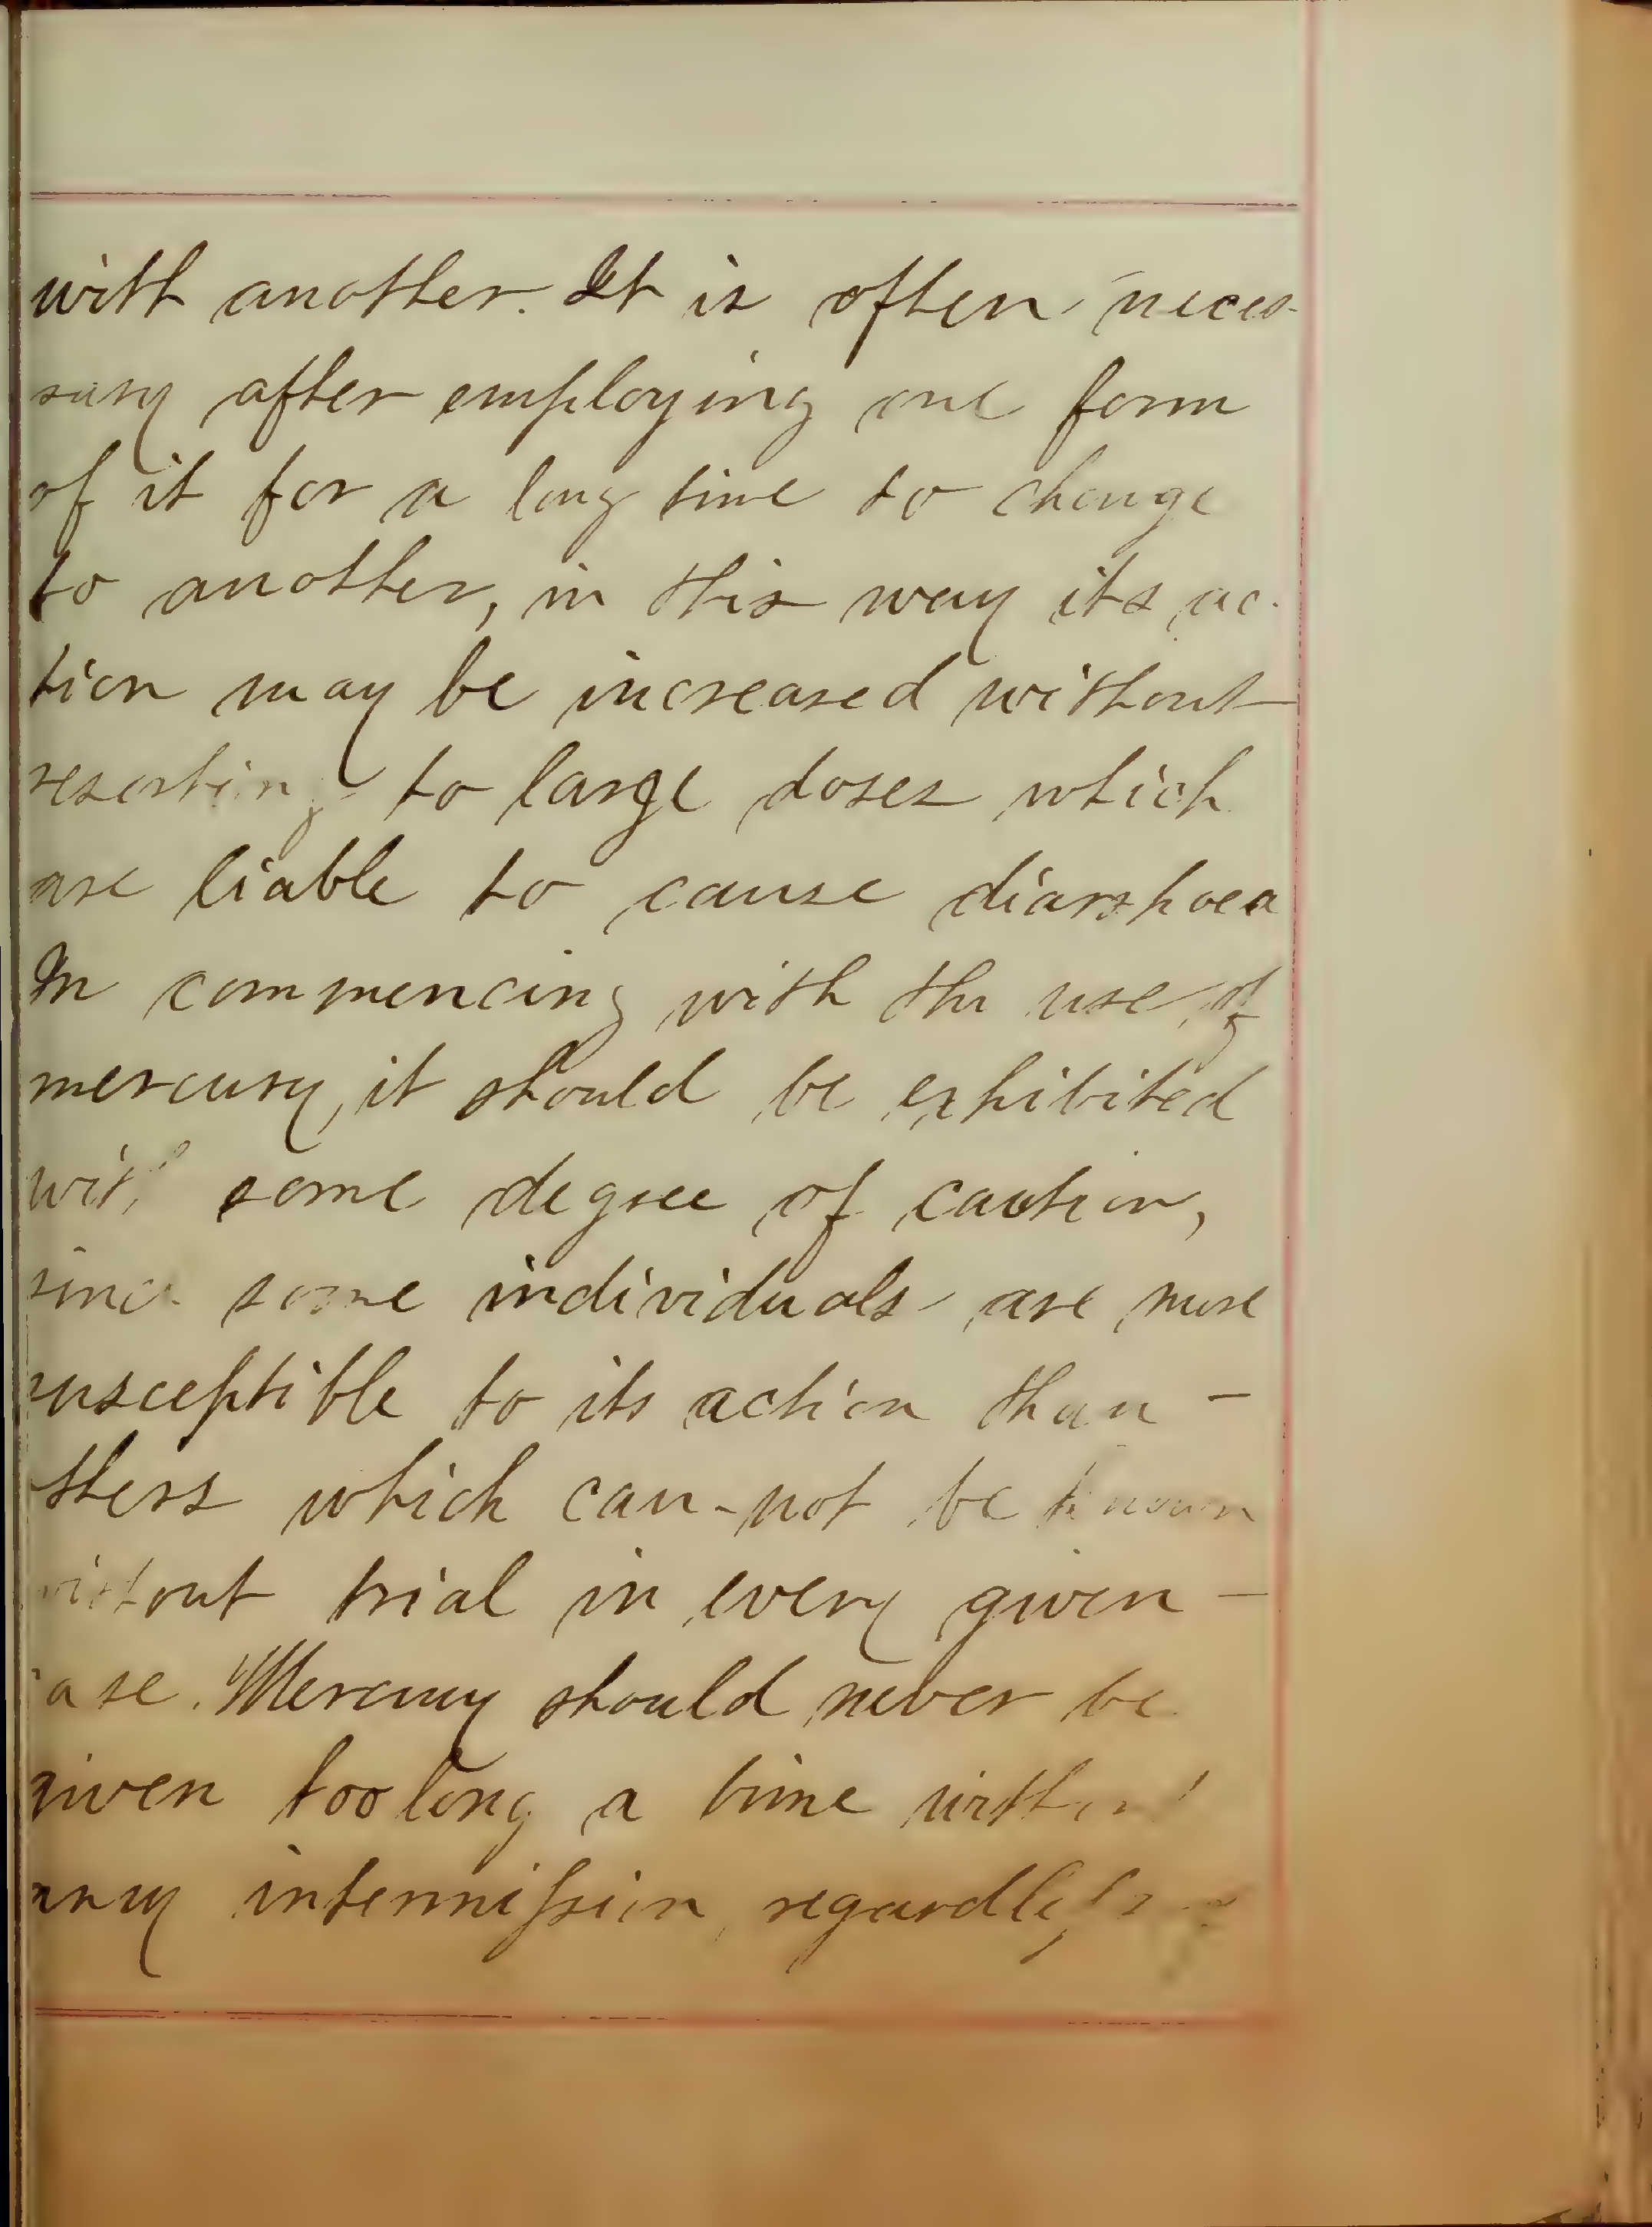 with another. It is often neces-
sary after employing one form
of it for a long time to change
to another, in this way its ac-
tion may be increased without
resorting to large doses which
are liable to cause diarrhoea
In commencing with the use of
mercury, it should be exhibited
with some degree of caution,
since some individuals are more
susceptible to its action than -
others which can-not be known
without trial in every given -
case. Mercury should never be
given too long a time without
any intermission, regardless